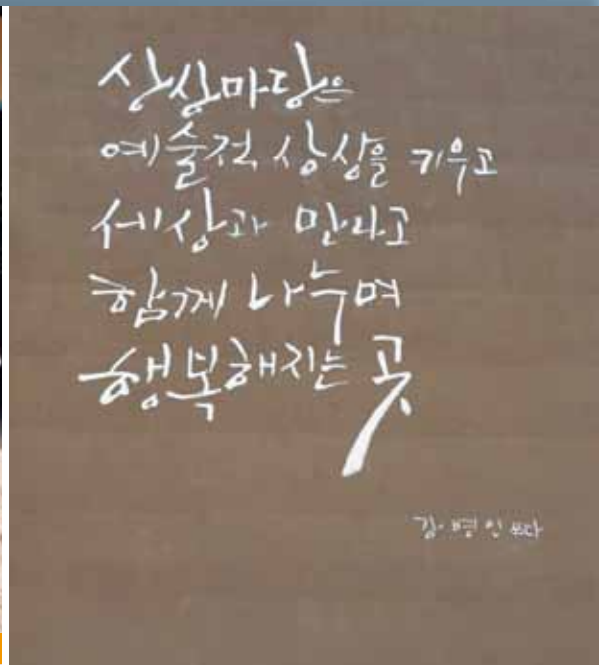 상상마당은
예술적 상상을 키우고
세상과 만나고
함께 나누며
행복해지는 곳
김병인 쓰다